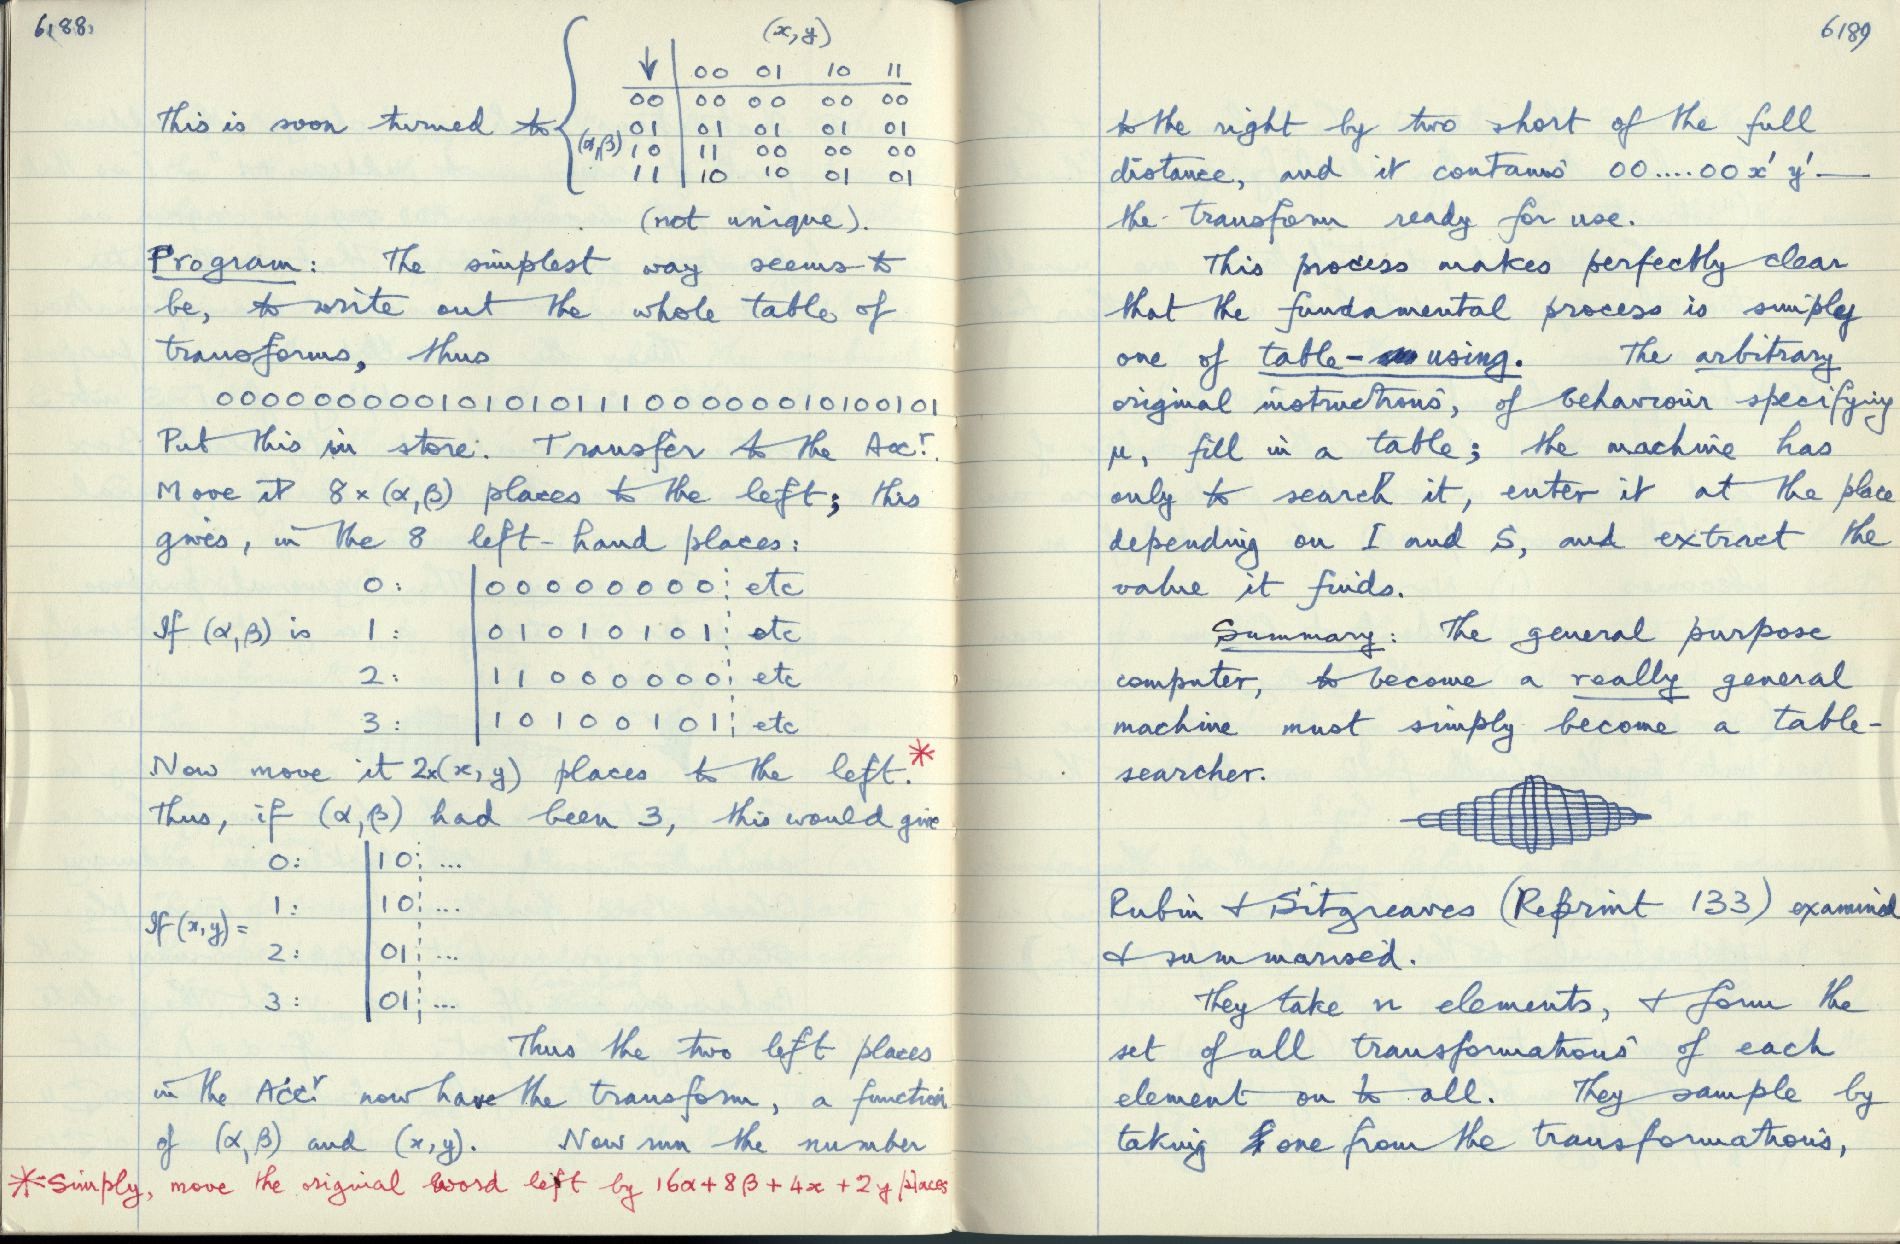 6188.
(x,y)
↓ 00 01 10 11
00 00 00 00 00
This is soon turned to (α,β) 01 01 01 01 01
10 11 00 00 00
11 10 10 01 01
(not unique).
Program: The simplest way seems to
be, to write out the whole table of
transforms, thus
00000000010101011100000010100101
Put this in store. Transfer to the Accr.
Move it 8×(α,β) places to the left; this
gives, in the 8 left-hand places:
0: 00000000 etc
If (α,β) is 1: 01010101 etc
2: 11000000 etc
3: 10100101 etc
Now move it 2×(x,y) places to the left.*
Thus, if (α,β) had been 3, this would give
0: 10 ...
1: 10 ...
If (x,y) =
2: 01 ...
3: 01 ...
Thus the two left places
in the Accr. now have the transform, a function
of (α,β) and (x,y). Now run the number
* Simply, move the original word left by 16α+8β+4x+2y places
6189
to the right by two short of the full
distance, and it contains 00....00x'y' —
the transform ready for use.
This process makes perfectly clear
that the fundamental process is simply
one of table-using. The arbitrary
original instructions, of behaviour specifying
μ, fill in a table; the machine has
only to search it, enter it at the place
depending on I and S, and extract the
value it finds.
Summary: The general purpose
computer, to become a really general
machine must simply become a table-
searcher.
Rubin & Sitgreaves (Reprint 133) examined
& summarised.
They take n elements, & form the
set of all transformations of each
element on to all. They sample by
taking one from the transformations,